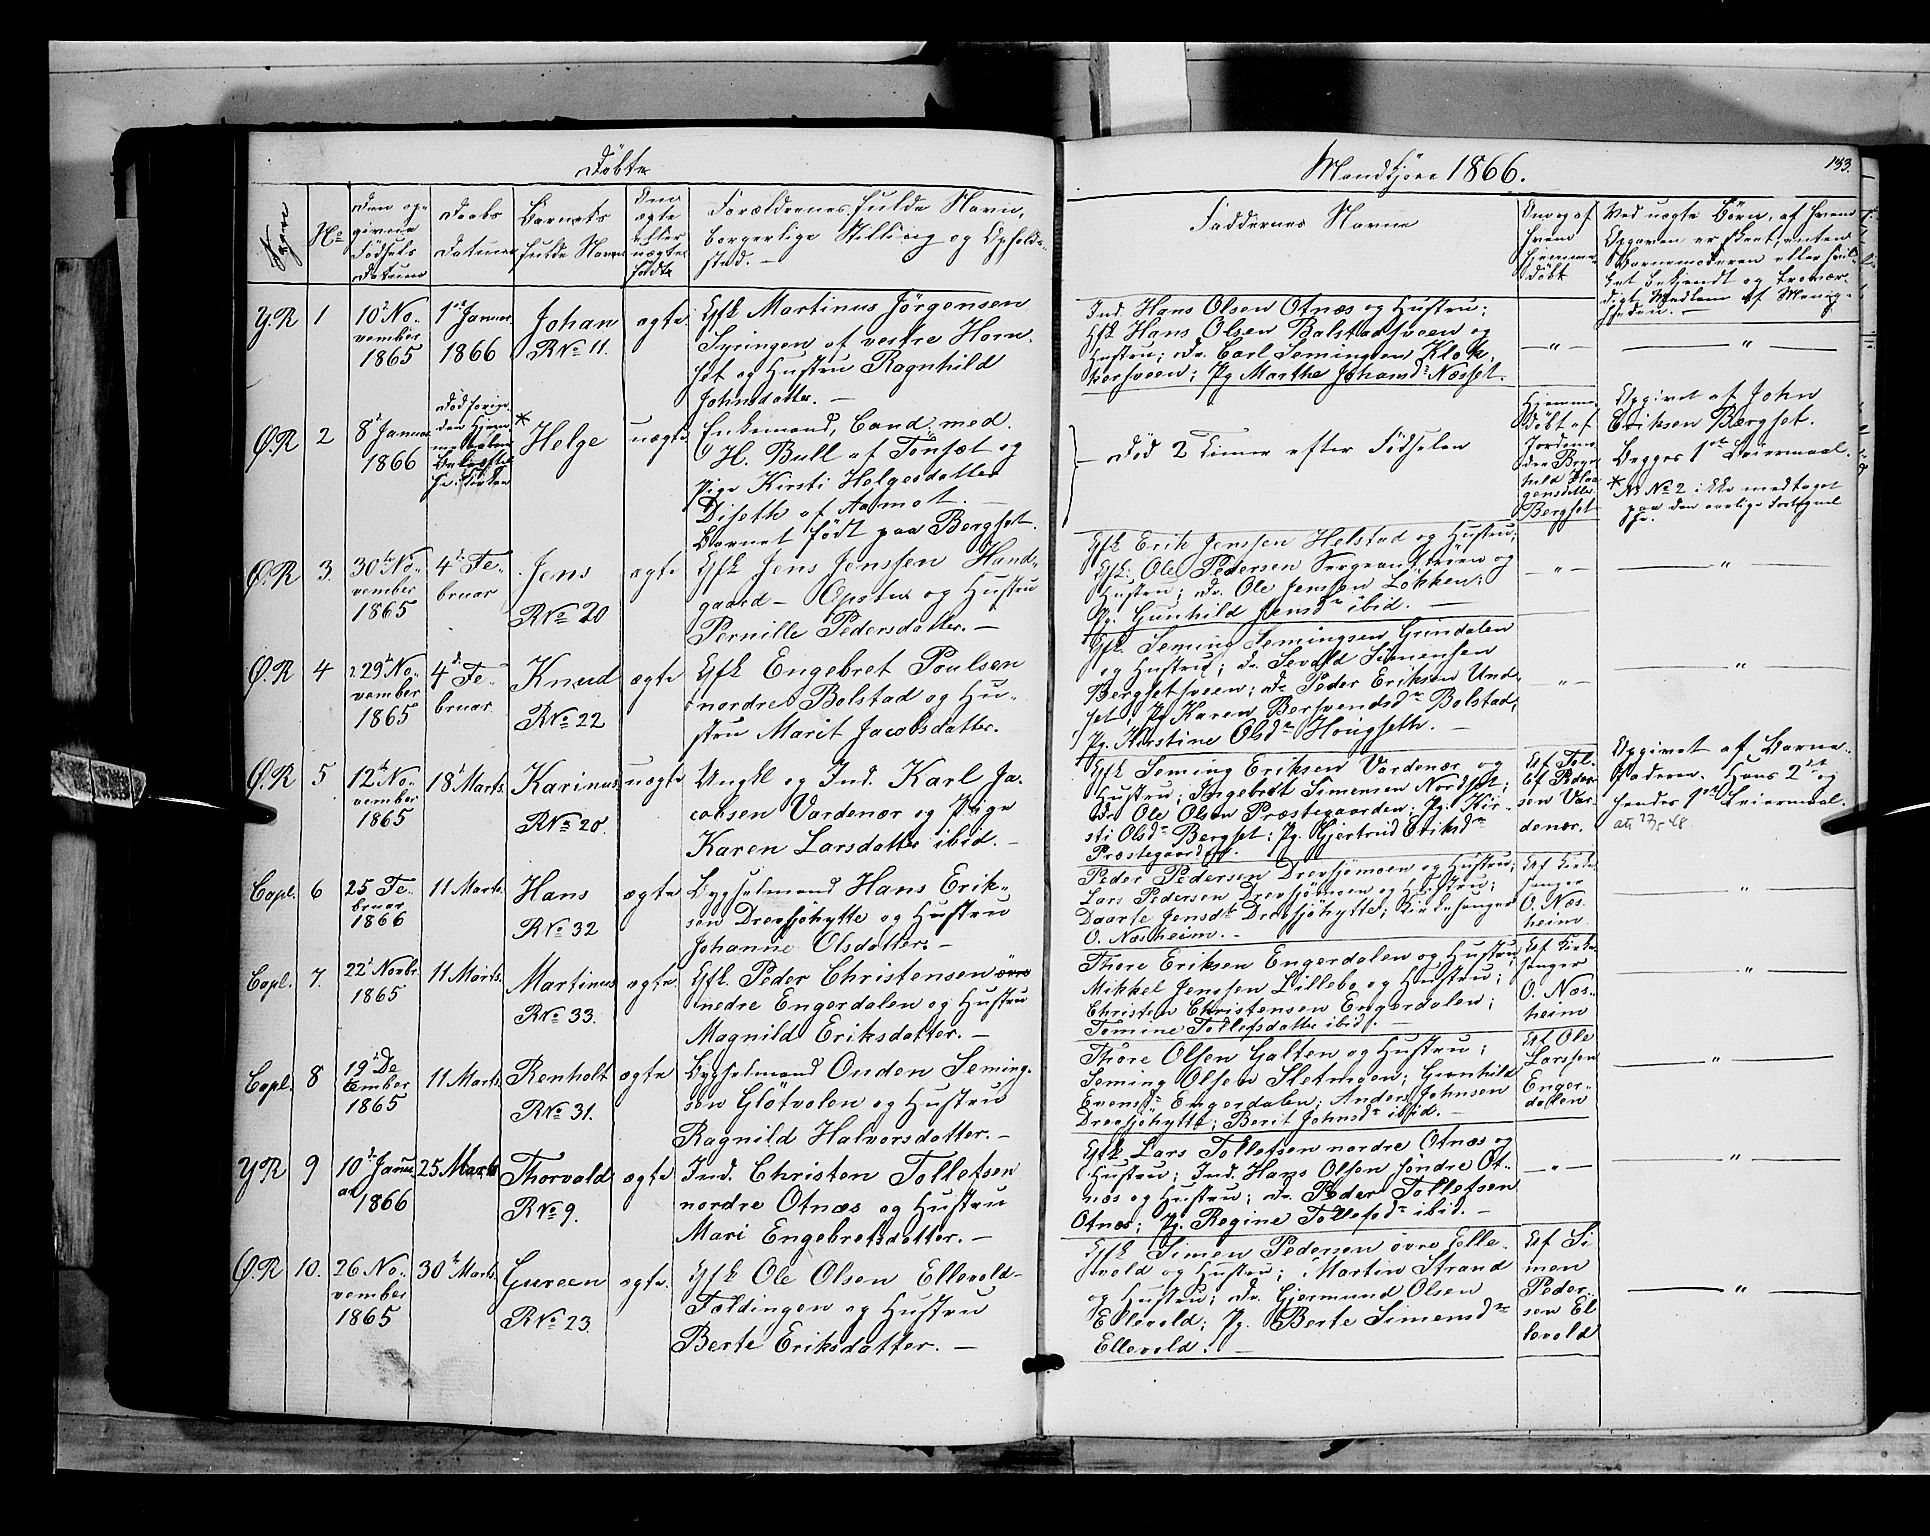 Döbte
Mandkjön 1866.
133.
No
Den op-
givne
Födsels
Datum
Daabs
Datum
Barnets
fulde Navn
Om
ægte
eller
uægte
födte
Forældrenes fulde Navn,
borgerlige Stilling og Opholds-
sted. —
Faddernes Navne
Om og af
hvem
hjemme-
döbt
Ved uægte Börn, af hvem
Opgaven er skeet, enten
Barnemoderen eller hvil-
ket bekjendt og troevær-
digt Medlem af Menig-
heden. —
Y.R 1 10de No-
vember
1865
1ste Januar
1866
Johan
R No 11.
ægte
Gfk Martinus Jörgensen
Syringen af vestre Horn-
set og Hustru Ragnhild
Johnsdatter. —
Ind. Hans Olsen Otnæs og Hustru;
Gfk Hans Olsen Bolstadsveen og
Hustru; Dr. Carl Semingsen Klok-
kersveen; Pg Marthe Johansdr Næsset.
— " —
— " —
Ø.R 2 8de Januar
1866
* Helge
uægte
Enkemand, Cand. med.
H. Bull af Tönset og
Pige Kirsti Helgesdatter
Diseth af Aamot. —
Barnet födt paa Bergset.
Död 2 Timer efter Födselen
Hjemme-
döbt af
Jordemo-
der Bryn-
hild Haa-
gensdatter
Bergset
Opgivet af John
Eriksen Bergset.
Begges 1ste Leiermaal.
* NB No 2 ikke medtaget
paa den aarlige Fortegnel
se.
Ø.R 3. 30te No-
vember
1865
4de Fe-
bruar
Jens
R No 20
ægte
Gfk Jens Jenssen Haand-
gaard – Opstu og Hustru
Pernille Pedersdatter. —
Gfk Erik Jenssen Helstad og Hustru;
Gfk. Ole Pedersen Sergeantsveen og
Hustru; Dr. Ole Jenssen Lökken;
Pg. Gunhild Jensdr ibid. —
— " —
— " —
Ø.R 4 29de No-
vember
1865
4de Fe-
bruar
Knud
R No 22
ægte
Gfk Engebret Poulsen
nordre Bolstad og Hu-
stru Marit Jacobsdatter.
Gfk. Seming Semingsen Grindalen
og Hustru; Dr. Sevald Simensen
Bergsetsveen; Dr. Peder Eriksen Und-
set; Pg Karen Bersvendsdr Bolstad;
Pg. Kirstine Olsdr Hougseth. —
— " —
— " —
Ø.R 5 12te No-
vember
1865
18de Marts.
Karinus
R No 20.
uægte
Ungk. og Ind. Karl Ja-
cobsen Vardenær og Pige
Karen Larsdatter ibid. —
Gfk Seming Eriksen Vardenær og
Hustru; Ingebret Simensen Nordset;
Dr. Ole Olsen Præstegaarden; Pg. Kir-
sti Olsdr Bergset; Pg. Gjertrud Eriksdr
Præstegaarden.
Af Tol-
lef Peder-
sen Var-
denær.
Opgivet af Barne-
faderen. Hans 2det og
hendes 1ste Leiermaal.
Capl. 6 25 Fe-
bruar
1866
11 Marts.
Hans
R No 32
ægte
Bygselmand Hans Erik-
sen Drevsjöhytte og Hustru
Johanne Olsdatter. —
Peder Pedersen Drevsjömoen og Hustru;
Lars Pedersen Drevsjömoen og Hustru;
Daarte Jensdr Drevsjöhytte; Kirkesanger
O. Næsheim. —
Af Kirke-
sanger
O. Næs-
heim
— " —
Capl. 7. 22de Novbr.
1865
11 Marts.
Martinus
R No 33.
ægte
Gfk. Peder Christensen övre
nedre Engerdalen og Hustru
Magnild Eriksdatter. —
Thore Eriksen Engerdalen og Hustru;
Mikkel Jenssen Lillebo og Hustru;
Christen Christensen Engerdalen;
Tomine Tollefsdatter ibid. —
Af Kirke-
sanger
O. Næs-
heim
— " —
Capl 8 19de De
cember
1865
11 Marts.
Renholt
R No 31.
ægte
Bygselmand Ouden Seming-
sen Glötvolen og Hustru
Ragnild Halvorsdatter. —
Thore Olsen Galten og Hustru;
Seming Olsen Sletmoen; Gunhild
Evensdr Engerdalen; Anders Johnsen
Drevsjöhytte; Berit Johnsdr ibid. —
Af Ole
Larssen
Enger-
dalen
— " —
Y R 9 10de Janu
ar
1866
25 Marts
Thorvald
R No 9.
ægte
Ind. Christen Tollefsen
nordre Otnæs og Hustru
Mari Engebretsdatter. —
Gfk Lars Tollefsen nordre Otnæs og
Hustru; Ind. Hans Olsen söndre Ot-
næs og Hustru; Dr. Peder Tollefsen
Otnæs; Pg. Regine Tollefsdr ibid. —
— " —
— " —
Ø.R 10. 26 No-
vember
1865
30te Marts.
Gureen
R No 23.
ægte.
Gfk Ole Olsen Ellevold-
Fældingen og Hustru
Berte Eriksdatter. —
Gfk Simen Pedersen övre Elle-
vold og Hustru; Martin Strand
og Hustru; Dr. Gjermund Olsen
Ellevold; Pg. Berte Simensdr
Ellevold. —
Af Si
men
Peder-
sen El
levold
— " —